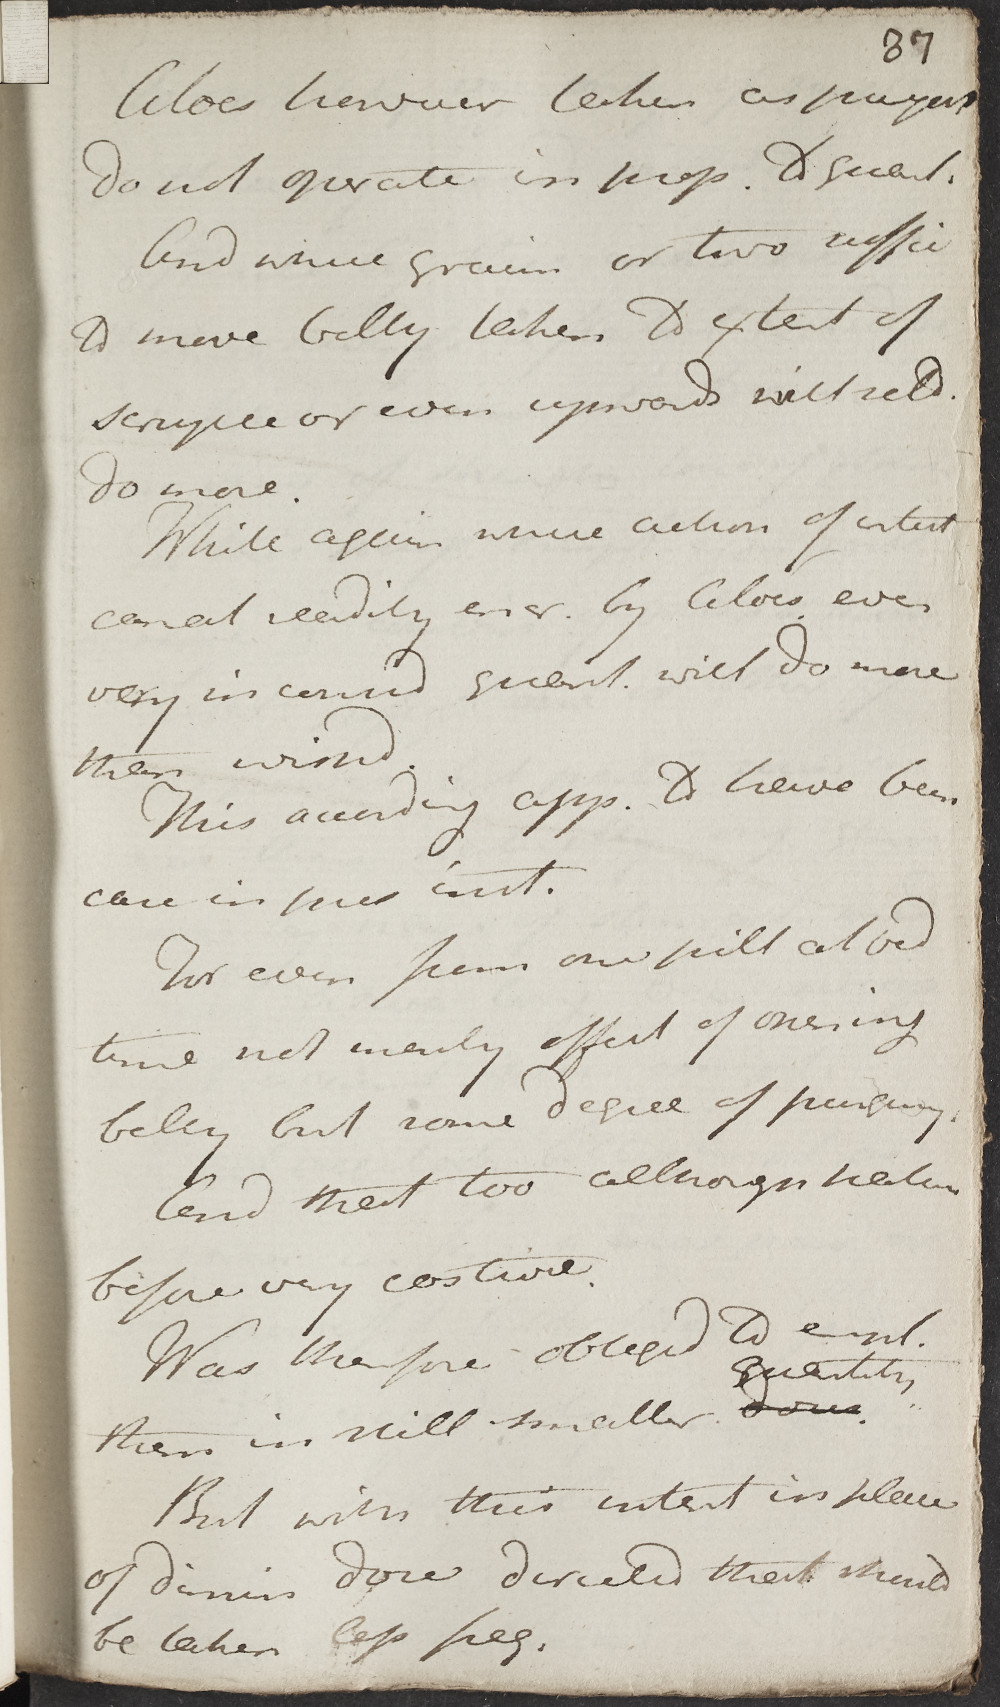 37
Aloes however taken as purgers
do not operate in prop. to quant.
And where grain or two suffic
to move belly taken to extent of
scruple or even upwards will seld.
do more.
While again where action of intest
canal readily ener. by Aloes even
very inconsid quant. will do more
than wishd.
This according app. to have been
case in pres inst.
For even from one pill at bed
time not merely effect of opening
belly but some degree of purging.
And that too although natur
before very costive.
Was therefore obliged to empl.
quantity
them in still smaller dose.
But with this intent in place
of dimin dose directed that should
be taken less freq.